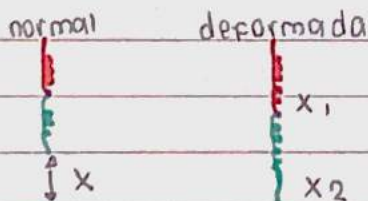 normal deformada
x₁
x
x₂